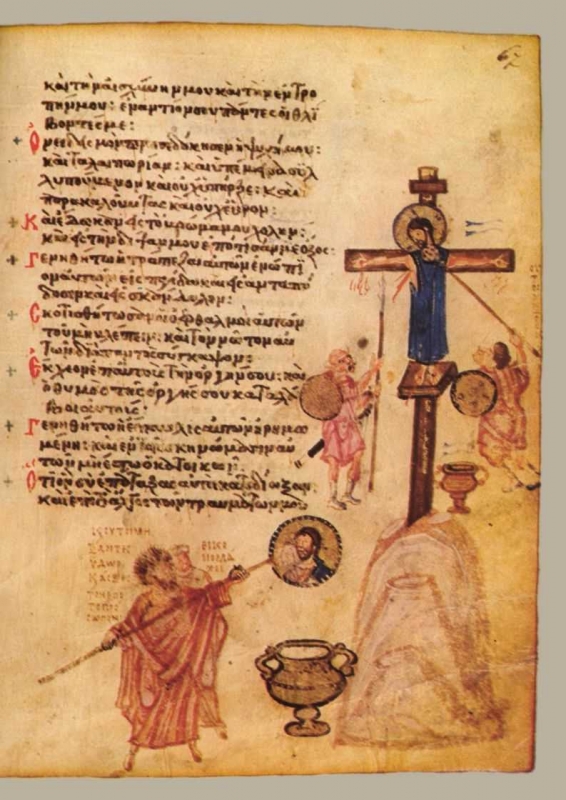 καὶ τὴν αἰσχύνην μου καὶ τὴν ἐντρο
πήν μου: ἐναντίον σου πάντες οἱ θλί
βοντές με:
Ὀνειδισμὸν προσεδόκησεν ἡ ψυχή μου:
καὶ ταλαιπωρίαν: καὶ ὑπέμεινα συλ
λυπούμενον καὶ οὐχ ὑπῆρξε: καὶ
παρακαλοῦντας καὶ οὐχ εὗρον:
Καὶ ἔδωκαν εἰς τὸ βρῶμα μου χολὴν:
καὶ εἰς τὴν δίψαν μου ἐπότισάν με ὄξος:
Γενηθήτω ἡ τράπεζα αὐτῶν ἐνώπι
ον αὐτῶν εἰς παγίδα καὶ εἰς ἀνταπό
δοσιν καὶ εἰς σκάνδαλον:
Σκοτισθήτωσαν οἱ ὀφθαλμοὶ αὐτῶν
τοῦ μὴ βλέπειν: καὶ τὸν νῶτον αὐ
τῶν διὰ παντὸς σύγκαμψον:
Ἔκχεον ἐπ' αὐτοὺς τὴν ὀργήν σου: καὶ
ὁ θυμὸς τῆς ὀργῆς σου καταλά
βοι αὐτούς:
Γενηθήτω ἡ ἔπαυλις αὐτῶν ἠρημω
μένη: καὶ ἐν τοῖς σκηνώμασιν αὐ
τῶν μὴ ἔστω ὁ κατοικῶν:
Ὅτι ὃν σὺ ἐπάταξας αὐτοὶ κατεδίωξαν:
καὶ ἐπὶ τὸ ἄλγος τῶν τραυμάτων μου